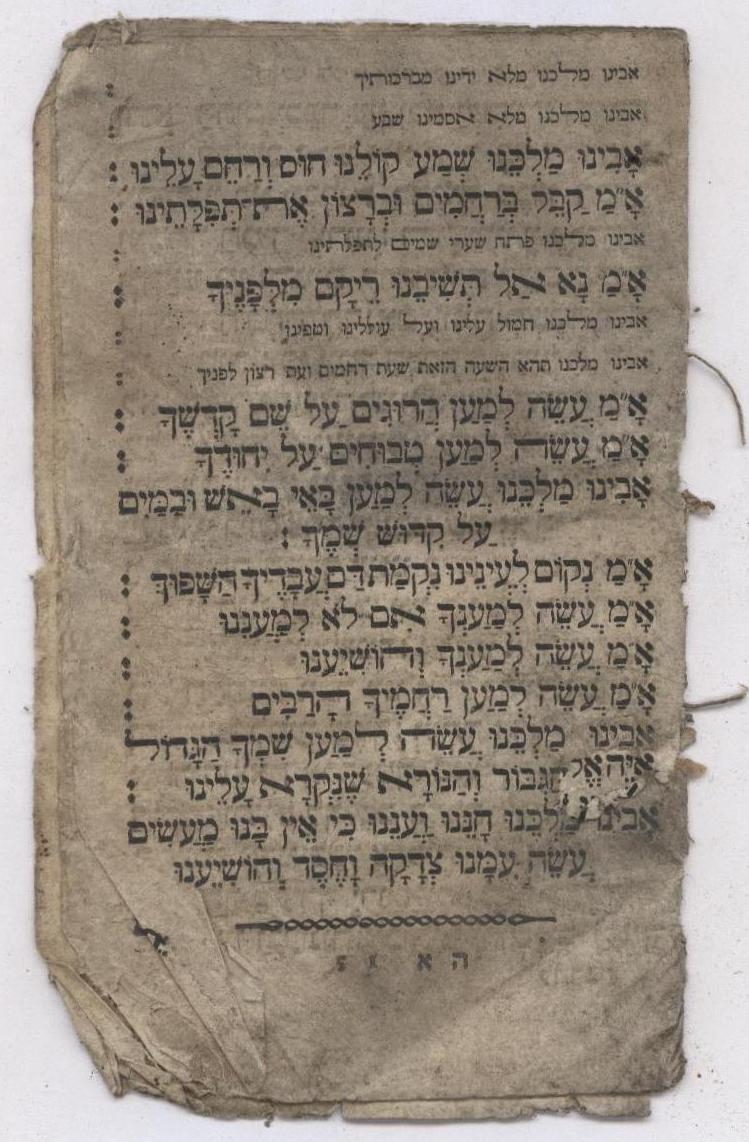 אבינו מלכנו מלא ידינו מברכותיך
אבינו מלכנו מלא אסמינו שבע
אָבִינוּ מַלְכֵּנוּ שְׁמַע קוֹלֵנוּ חוּס וְרַחֵם עָלֵינוּ :
אָ״מַ קַבֵּל בְּרַחֲמִים וּבְרָצוֹן אֶת־תְּפִלָּתֵינוּ :
אבינו מלכנו פתח שערי שמים לתפלתינו :
אָ״מַ נָא אַל תְּשִׁיבֵנוּ רֵיקָם מִלְּפָנֶיךָ :
אבינו מלכנו חמול עלינו ועל עוללינו וטפינו :
אבינו מלכנו תהא השעה הזאת שעת רחמים ועת רצון לפניך :
אָ״מַ עֲשֵׂה לְמַעַן הֲרוּגִים עַל שֵׁם קָדְשֶׁךָ :
אָ״מַ עֲשֵׂה לְמַעַן טְבוּחִים עַל יִחוּדֶךָ :
אָבִינוּ מַלְכֵּנוּ עֲשֵׂה לְמַעַן בָּאֵי בָאֵשׁ וּבַמַּיִם
עַל קִדּוּשׁ שְׁמֶךָ :
אָ״מַ נְקוֹם לְעֵינֵינוּ נִקְמַת דַּם עֲבָדֶיךָ הַשָּׁפוּךְ :
אָ״מַ עֲשֵׂה לְמַעַנְךָ אִם לֹא לְמַעֲנֵנוּ :
אָ״מַ עֲשֵׂה לְמַעַנְךָ וְהוֹשִׁיעֵנוּ :
אָ״מַ עֲשֵׂה לְמַעַן רַחֲמֶיךָ הָרַבִּים :
אָבִינוּ מַלְכֵּנוּ עֲשֵׂה לְמַעַן שִׁמְךָ הַגָּדוֹל
הַגִּבּוֹר וְהַנּוֹרָא שֶׁנִּקְרָא עָלֵינוּ :
אָבִינוּ מַלְכֵּנוּ חָנֵּנוּ וַעֲנֵנוּ כִּי אֵין בָּנוּ מַעֲשִׂים
עֲשֵׂה עִמָּנוּ צְדָקָה וָחֶסֶד וְהוֹשִׁיעֵנוּ